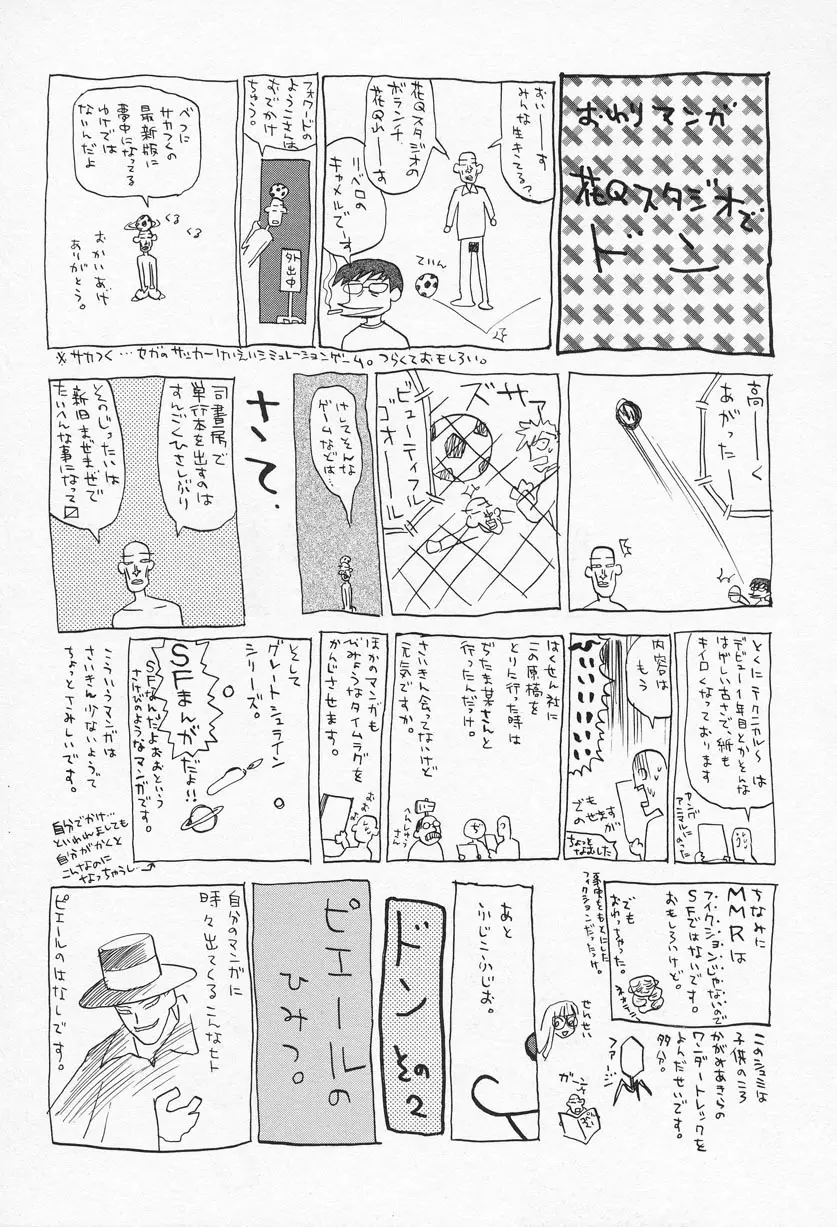 おわりマンガ
花Qスタジオで
ドン
おいーーす
みんな生きてる?
花Qスタジオの
ボランチ
花Q山ーす
リベロの
キャメルです
ていん
フォワードの
ようこさんは
おでかけ
ちゅう。
外出中
べつに
サカつくの
最新版に
夢中になってる
ゆけでは
ないんだよ
くる
くる
おかいあげ
ありがとう。
※サカつく…セガのサッカーけいえいシミュレーションゲーム。つらくておもしろい。
高ーーく
あがったーー
ズサァ
ビューティフル
ゴオーール
けしてそんな
ゲームなどは…
さて、
司書房で
単行本を出すのは
すんごくひさしぶり
そのじったいは
新旧まぜまぜで
たいへんな事になって〼
とくにテクニカル〜は
デビュー1年目とかそんな
はげしい古さで、紙も
キイロくなっております
ヤング
アニマルにのった
内容は
もう
でも
のせますが
ちょっと
なおしました
はくせん社に
この原稿を
とりに行った時は
ぢたま某さんと
行ったんだっけ。
さいきん会ってないけど
元気ですか。
へんしゅう
さん
ぢ
ほかのマンガも
びみょうなタイムラグを
かんじさせます。
おお
おお
そして
グレートシュライン
シリーズ。
SFまんがだよ!!
SFなんだよおおという
さけびのようなマンガです。
こういうマンガは
さいきん少ないようで
ちょっとさみしいです。
自分でかけ…
といわれんとしても
自分がかくと
こんなのに
なっちゃうし…
ちなみに
MMRは
フィクションじゃないので
SFではないです。
おもしろいけど。
でも
おわっちゃった。
事実をもとにした
フィクションだったっけ。
このシュミは
子供のころ
かがみあきらの
ワンダートレックを
よんだせいです。
多分。
せんせい
ファージ
ガーン
あと
ふじこふじお。
ドン
その2
ピエールの
ひみつ。
自分のマンガに
時々出てくるこんなヒト
ピエールのはなしです。